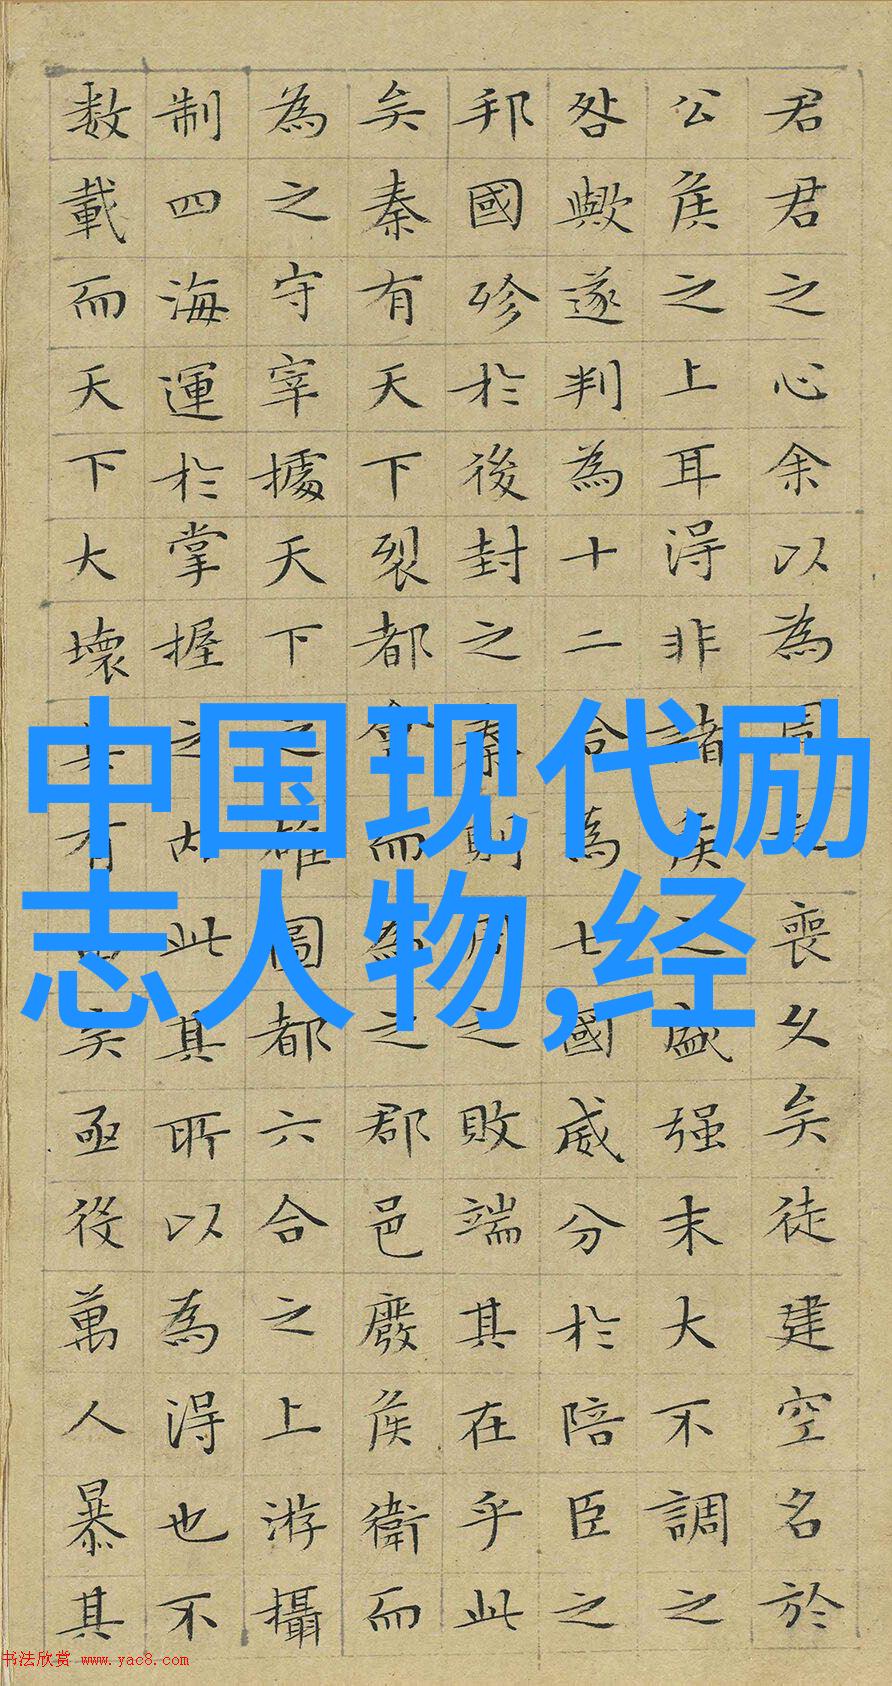 君君之心余以為周喪久矣徒建空名於
公侯之上耳得非諸侯之盛强末大不調之
咎歟遂判為十二合為七國威分於陪臣之
邦國殄於後封之秦則周之敗端其在乎此
矣秦有天下裂都會而為之郡邑廢侯衛而
為之守宰據天下之雄圖都六合之上游攝
制四海運於掌握之内此其所以為得也不
数載而天下大壞其有矣亟役萬人暴其
中国现代励
志人物,经
书法欣赏 www.yac8.com